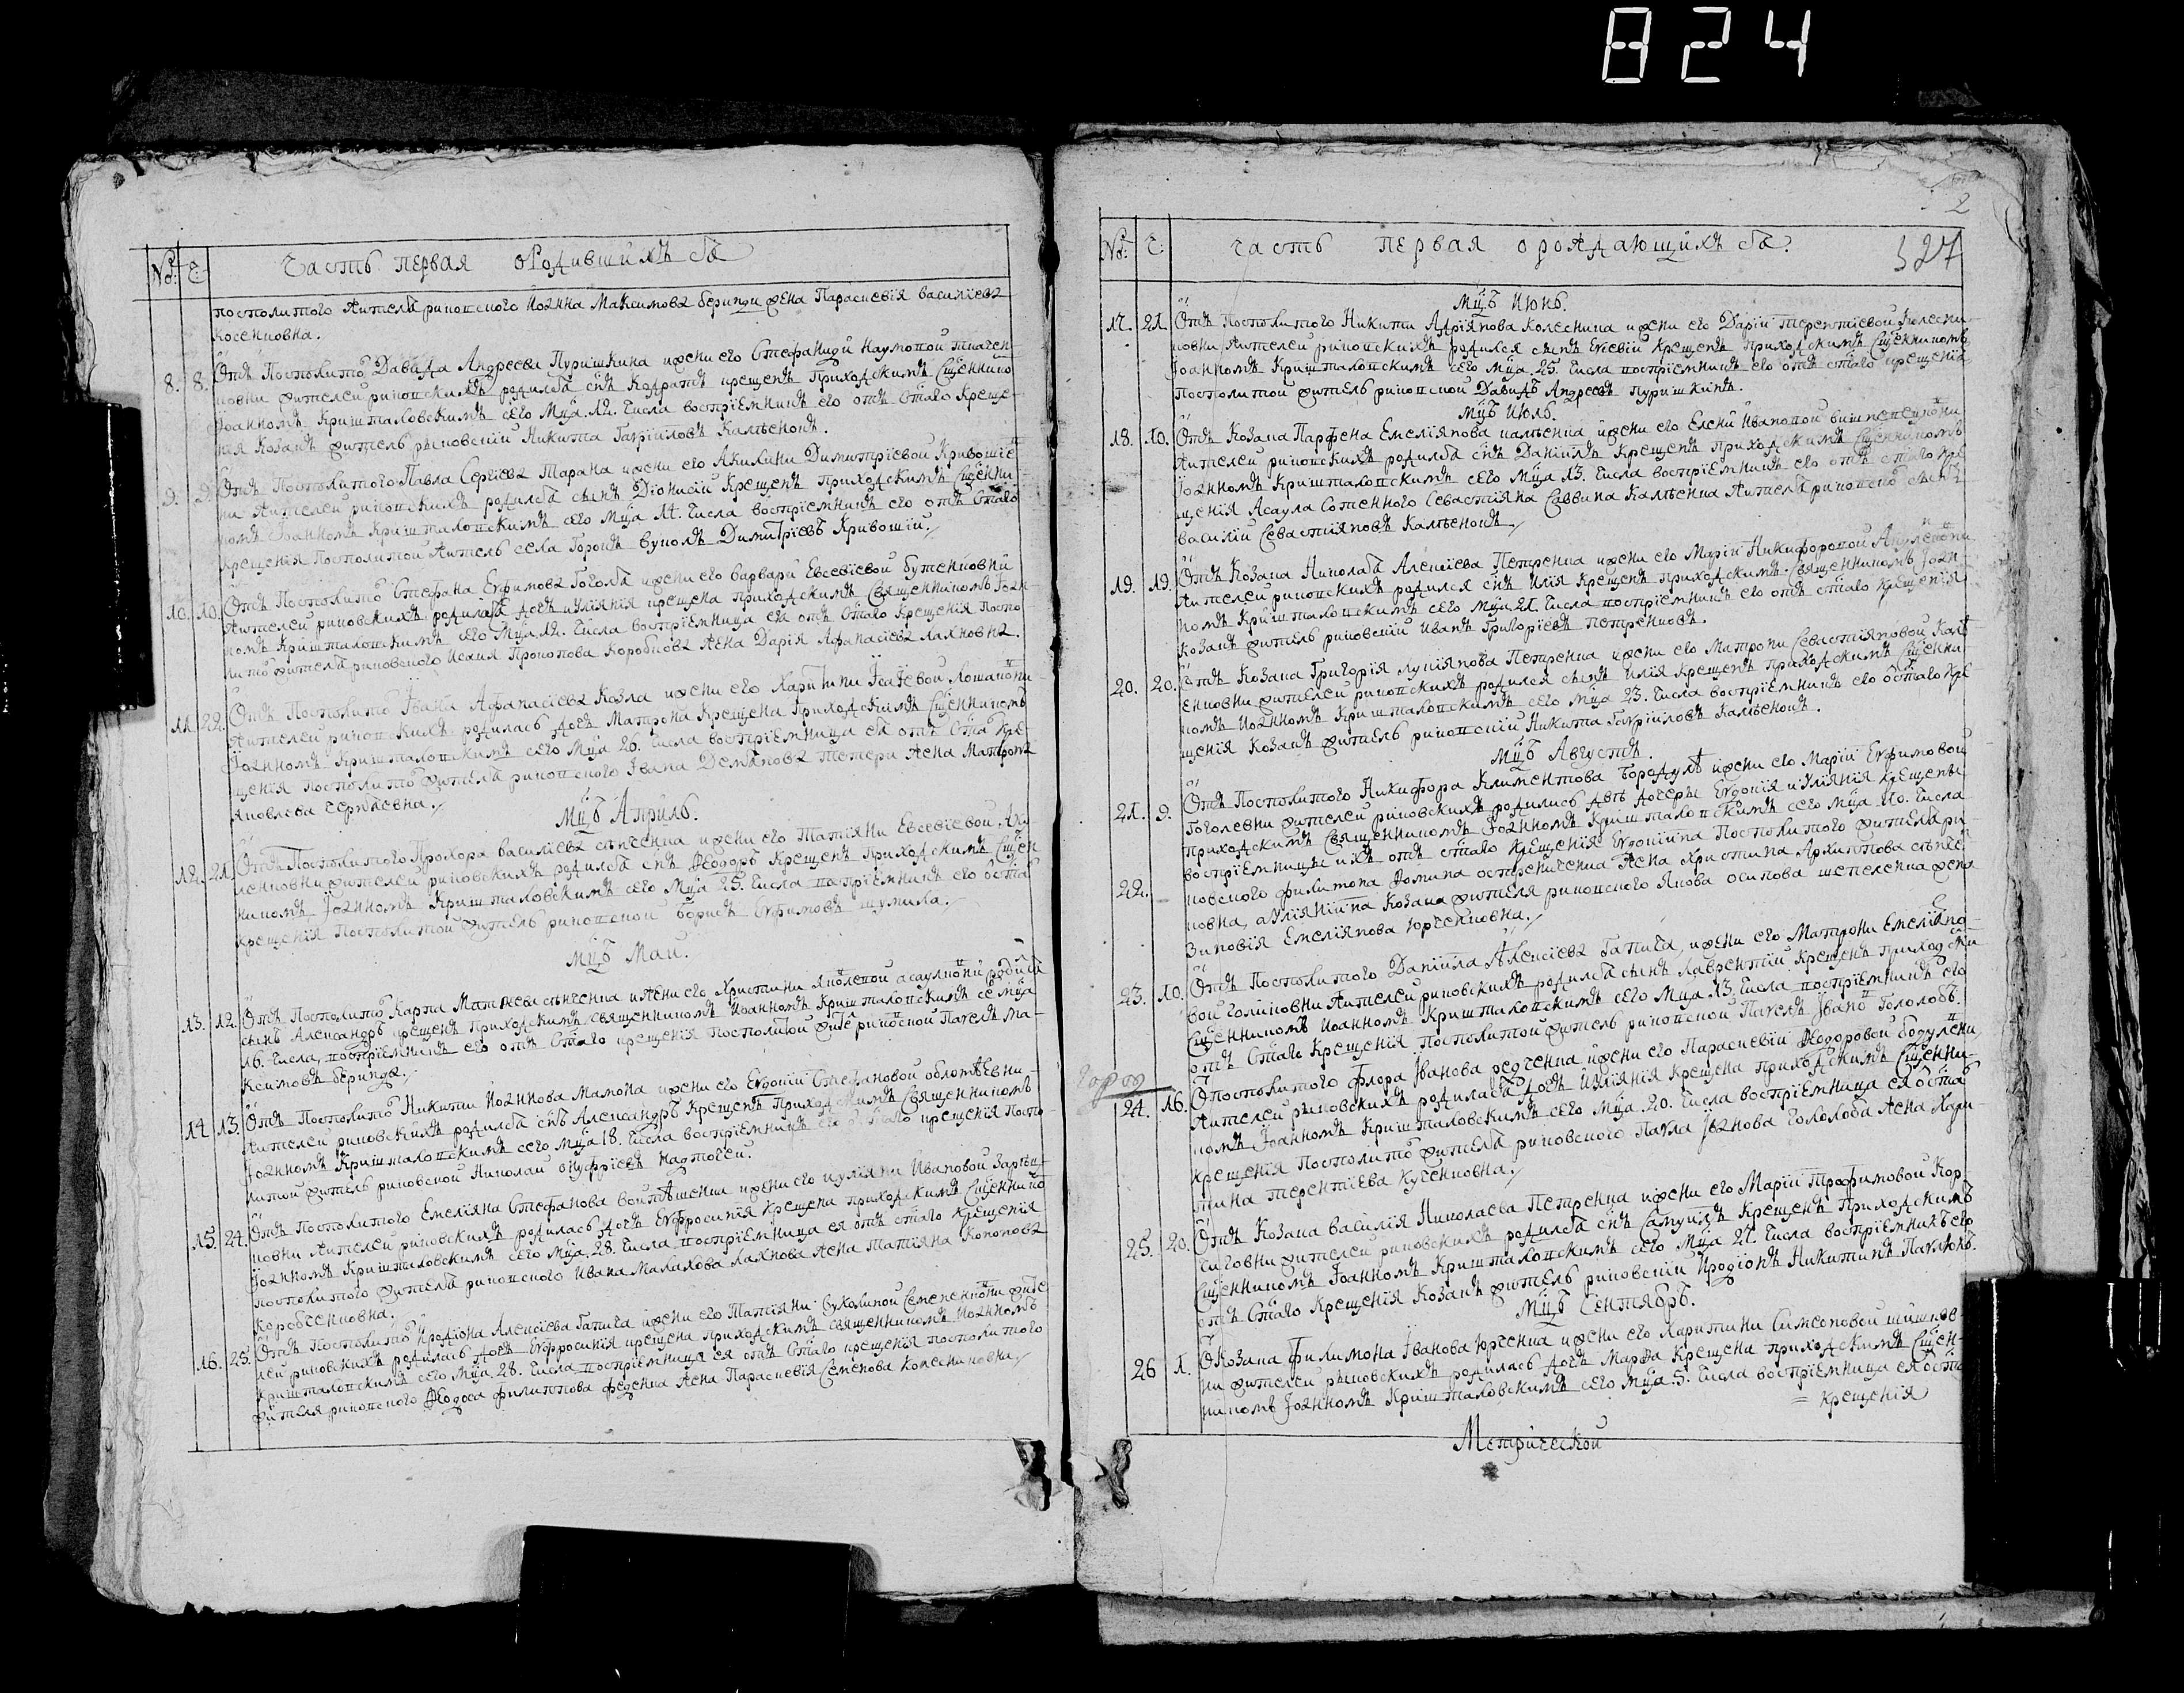 824
№ Ч:
Часть первая о Родившихъ ся
посполитого жителя риповского Иоанна Максимова Беринди жена Парасиевія Василіева
Косенковна.
8. 8. Отъ Посполито Давида Андреева Пуришкина ижени его Стефаниди Наумовой ткачен-
ковни жителей риповскихъ родился снъ Кодратъ крещенъ приходскимъ Сщеннико
Іоанномъ Кришталовскимъ сего Мца 12. Числа восприемникъ его отъ Стаго Креще-
нія Козакъ житель риповскій Никита Гавріиловъ Калѣеноکъ.
9. 9. Отъ Посполитого Павла Сергіева Тарана ижени его Акилини Димитріевой Кривошіе
ни жителей риповскихъ родился сынъ Діонисій Крещенъ приходскимъ Сщенни-
комъ Іоанномъ Кришталовскимъ сего Мца 14. Числа восприемникъ его отъ Стаго
крещенія Посполитой житель села Горокъ Вуколъ Димитріевъ Кривошій.
10. 10. Отъ Посполито Стефана Евфимова Гоголя ижени его Варвари Евсевіевой Бутенковни
жителей риповскихъ родилася дочь Иуліянія крещена приходскимъ Священникомъ Іоан-
номъ Кришталовскимъ сего Мца 12. Числа восприемница ея отъ Стаго Крещенія Поспо
лито жителя риповского Исаія Прокопова Коробкова жена Дарія Афанасіева Лахновна.
11. 22. Отъ Посполито Івана Афанасіева Козла ижени его Харитини Ісаевой Лошаковни
жителей риповскихъ родилась дочь Матрона Крещена приходскимъ Сщенникомъ
Іоанномъ Кришталовскимъ сего Мца 26. Числа восприемница ея отъ Стаго Кре-
щенія посполито жителя риповского Івана Демянова Тетери жена Матрона
Яковлева Черняевна.
Мцъ Априль.
12. 21. Отъ Посполитого Прохора Василіева ижени его Татіяни Евсевіевой
жителей риповскихъ родился снъ Ѳеодоръ Крещенъ приходскимъ Сщен
никомъ Іоанномъ Кришталовскимъ сего Мца 25. Числа восприемникъ его остаго
крещенія Посполитой житель риповской Борисъ Евфимовъ Шумила.
Мцъ Маи.
13. 12. Отъ Посполито Карпа Матвеева ижени его Христини Яковлевой Асаулковни родился
сынъ Александръ крещенъ приходскимъ священникомъ Иоанномъ Кришталовскимъ се Мца
16. Числа, восприемникъ его отъ Стаго крещенія посполитой жите риповской Павелъ Ма-
ксимовъ Беринда.
14. 13. Отъ Посполито Никити Иоаннова Мамона ижени его Евдокіи Стефановой
жителей риповскихъ родился снъ Александръ Крещенъ приходскимъ Священникомъ
Іоанномъ Кришталовскимъ сего Мца 18. Числа восприемникъ его остаго крещенія поспо-
литой житель риповской Николай Онуфріевъ Надточей.
15. 24. Отъ Посполитого Емеліяна Стефанова ижени его Иуліяни Ивановой
ковни жителей риповскихъ родилась дочь Евфросинія Крещена приходскимъ Сщеннико
Іоанномъ Кришталовскимъ сего Мца 28. Числа восприемница ея отъ стаго Крещенія
посполитого жителя риповского Ивана Малихова Лахнова жена Татіяна Кононова
Коробченковна.
16. 25. Отъ Посполито Иродіона Алексіева Гапича ижени его Татіяни жите
лей риповскихъ родилась дочь Евфросинія крещена приходскимъ священникомъ Иоанномъ
Кришталовскимъ сего Мца 28. Числа восприемница ея отъ Стаго крещенія посполитого
жителя риповского Ѳеодоса Филиппова Феденка жена Парасиевія Семенова Косенковна.
2
327
№ Ч:
Часть первая о рождающихъ ся
Мцъ Июнь.
17. 21. Отъ Посполитого Никити Адріянова Колесника ижени его Даріи Терентіевой Колесни-
ковни жителей риповскихъ родился сынъ Евсевій Крещенъ приходскимъ Сщенникомъ
Іоанномъ Кришталовскимъ сего Мца 25. Числа восприемникъ его отъ стаго крещенія
посполитой житель риповской Давидъ Андреевъ Пуришкинъ.
Мцъ Июль.
18. 10. Отъ Козака Парфена Емеліянова Калѣенка ижени его Елени Ивановой
жителей риповскихъ родился снъ Даніилъ Крещенъ приходскимъ Сщенникомъ
Іоанномъ Кришталовскимъ сего Мца 13. Числа восприемникъ его отъ стаго кре
щенія Асаула Сотенного Севастіяна Саввина Калѣенка жителя риповско сынъ
Василій Севастіяновъ Калѣенокъ
19. 19. Отъ Козака Николая Алексіева Петренка ижени его Маріи Никифоровой
жителей риповскихъ родился снъ Илія Крещенъ приходскимъ Священникомъ Іоан-
номъ Кришталовскимъ сего Мца 21. Числа восприемникъ его отъ стаго крещенія
Козакъ житель риповскій Иванъ Григоріевъ Петренковъ.
20. 20. Отъ Козака Григорія Лукіянова Петренка ижени его Матрони Севастіяновой Калѣ
енковни жителей риповскихъ родился сынъ Илія Крещенъ приходскимъ Сщенни
комъ Иоанномъ Кришталовскимъ сего Мца 23. Числа восприемникъ его остаго Кре
щенія Козакъ житель риповскій Никита Гавріиловъ Калѣенокъ.
Мцъ Августъ.
21. 9. Отъ Посполитого Никифора Климентова Бородулѣ ижени его Маріи Евфимовой
Гоголевни жителей риповскихъ родились двѣ дочери Евдокія иУліянія крещены
приходскимъ Священникомъ Іоанномъ Кришталовскимъ сего Мца 10. Числа
22. восприемницы ихъ отъ стаго Крещенія Евдокіина Посполитого жителя ри-
повского Филимона Жена Христина Архиппова
ковна, аУліяніина Козака жителя риповского Якова Осипова Шепеленка жена
Зиновія Емеліянова Юрченковна.
23. 10. Отъ Посполитого Даніила Алексіева Гапича, ижени его Матрони Емеліяно-
вой жителей риповскихъ родился сынъ Лаврентій Крещенъ приходски
Сщенникомъ Иоанномъ Кришталовскимъ сего Мца 13. Числа восприемникъ его
отъ Стаго Крещенія посполитой житель риповской Павелъ Івано Гололобъ.
24. 16. Опосполитого Флора Іванова Редченка ижени его Парасиевіи Ѳеодоровой
жителей риповскихъ родилася дочь Иуліянія Крещена приходскимъ Сщенни-
комъ Іоанномъ Кришталовскимъ сего Мца 20. Числа восприемница ея остаго
крещенія Посполито жителя риповского Павла Іоаннова Гололоба жена Хари-
тина Терентіева Куценковна.
25. 20. Отъ Козака Василія Николаева Петренка ижени его Маріи Трофимовой Кор
чиговни жителей риповскихъ родился снъ Самуилъ Крещенъ Приходскимъ
Сщенникомъ Іоанномъ Кришталовскимъ сего Мца 27. Числа восприемникъ его
отъ Стаго Крещенія Козакъ житель риповскій Иродіонъ Никитинъ Павлюкъ.
Мцъ Сентябръ.
26 1. Окозака Филимона Іванова Юрченка ижени его Харитини Симеоновой
ни жителей риповскихъ родилась дочь Марѳа Крещена приходскимъ Сщен-
никомъ Іоанномъ Кришталовскимъ сего Мца 5. Числа восприемница ея остаго
= крещенія
Метрической